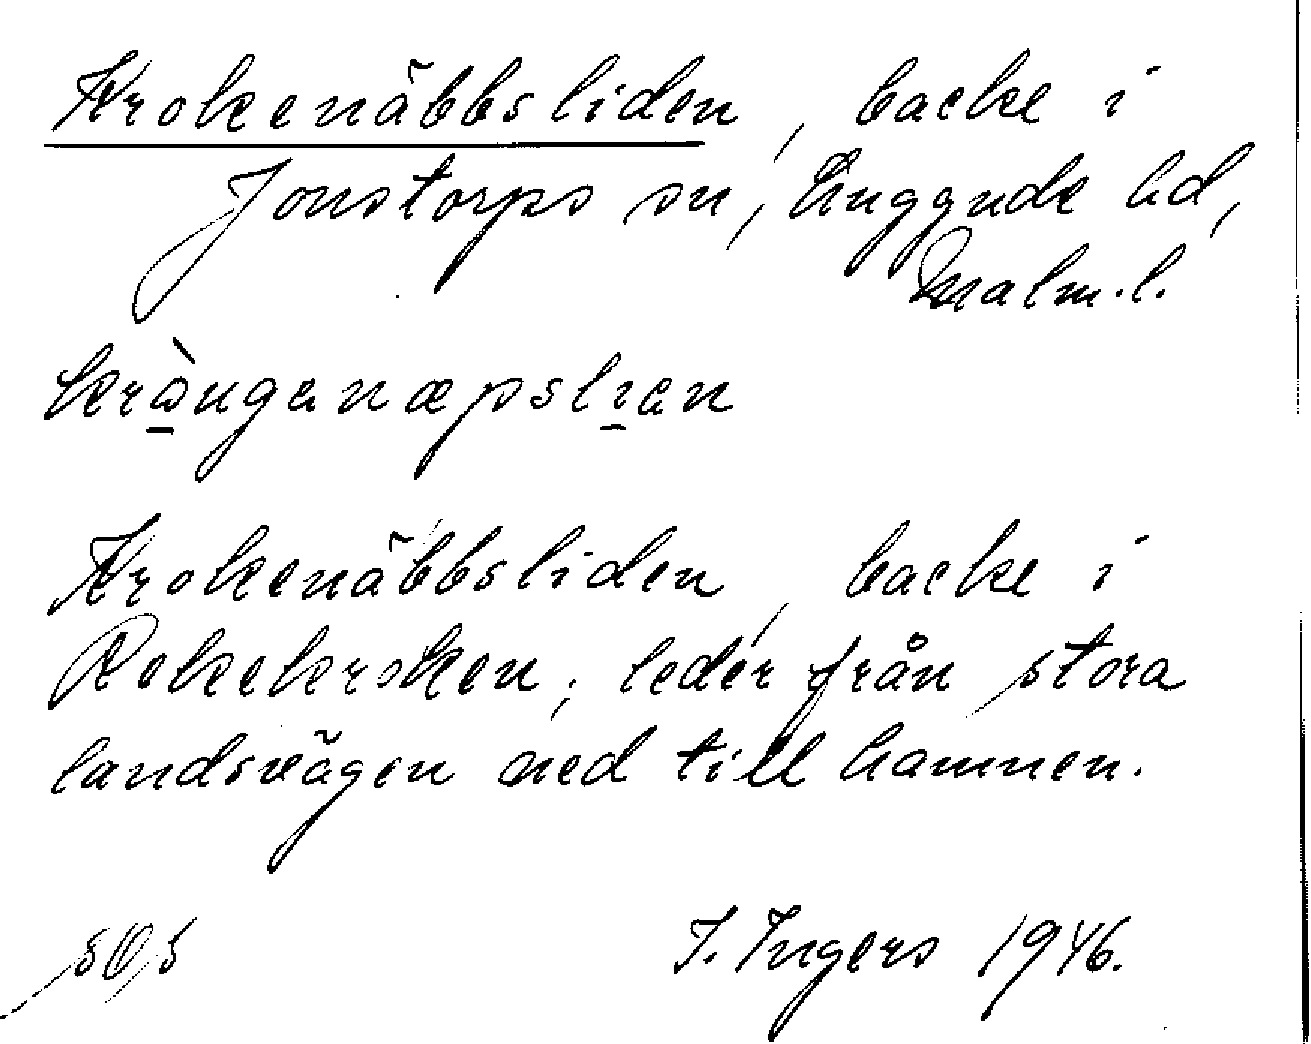 Krokenäbbsliden, backe i
Jonstorps sn, Luggude hd,
Malm.l.
krànganæpslian
Krokenäbbsliden, backe i
Rekekroken; leder från stora
landsvägen ned till hamnen.
I. Ingers 1946.